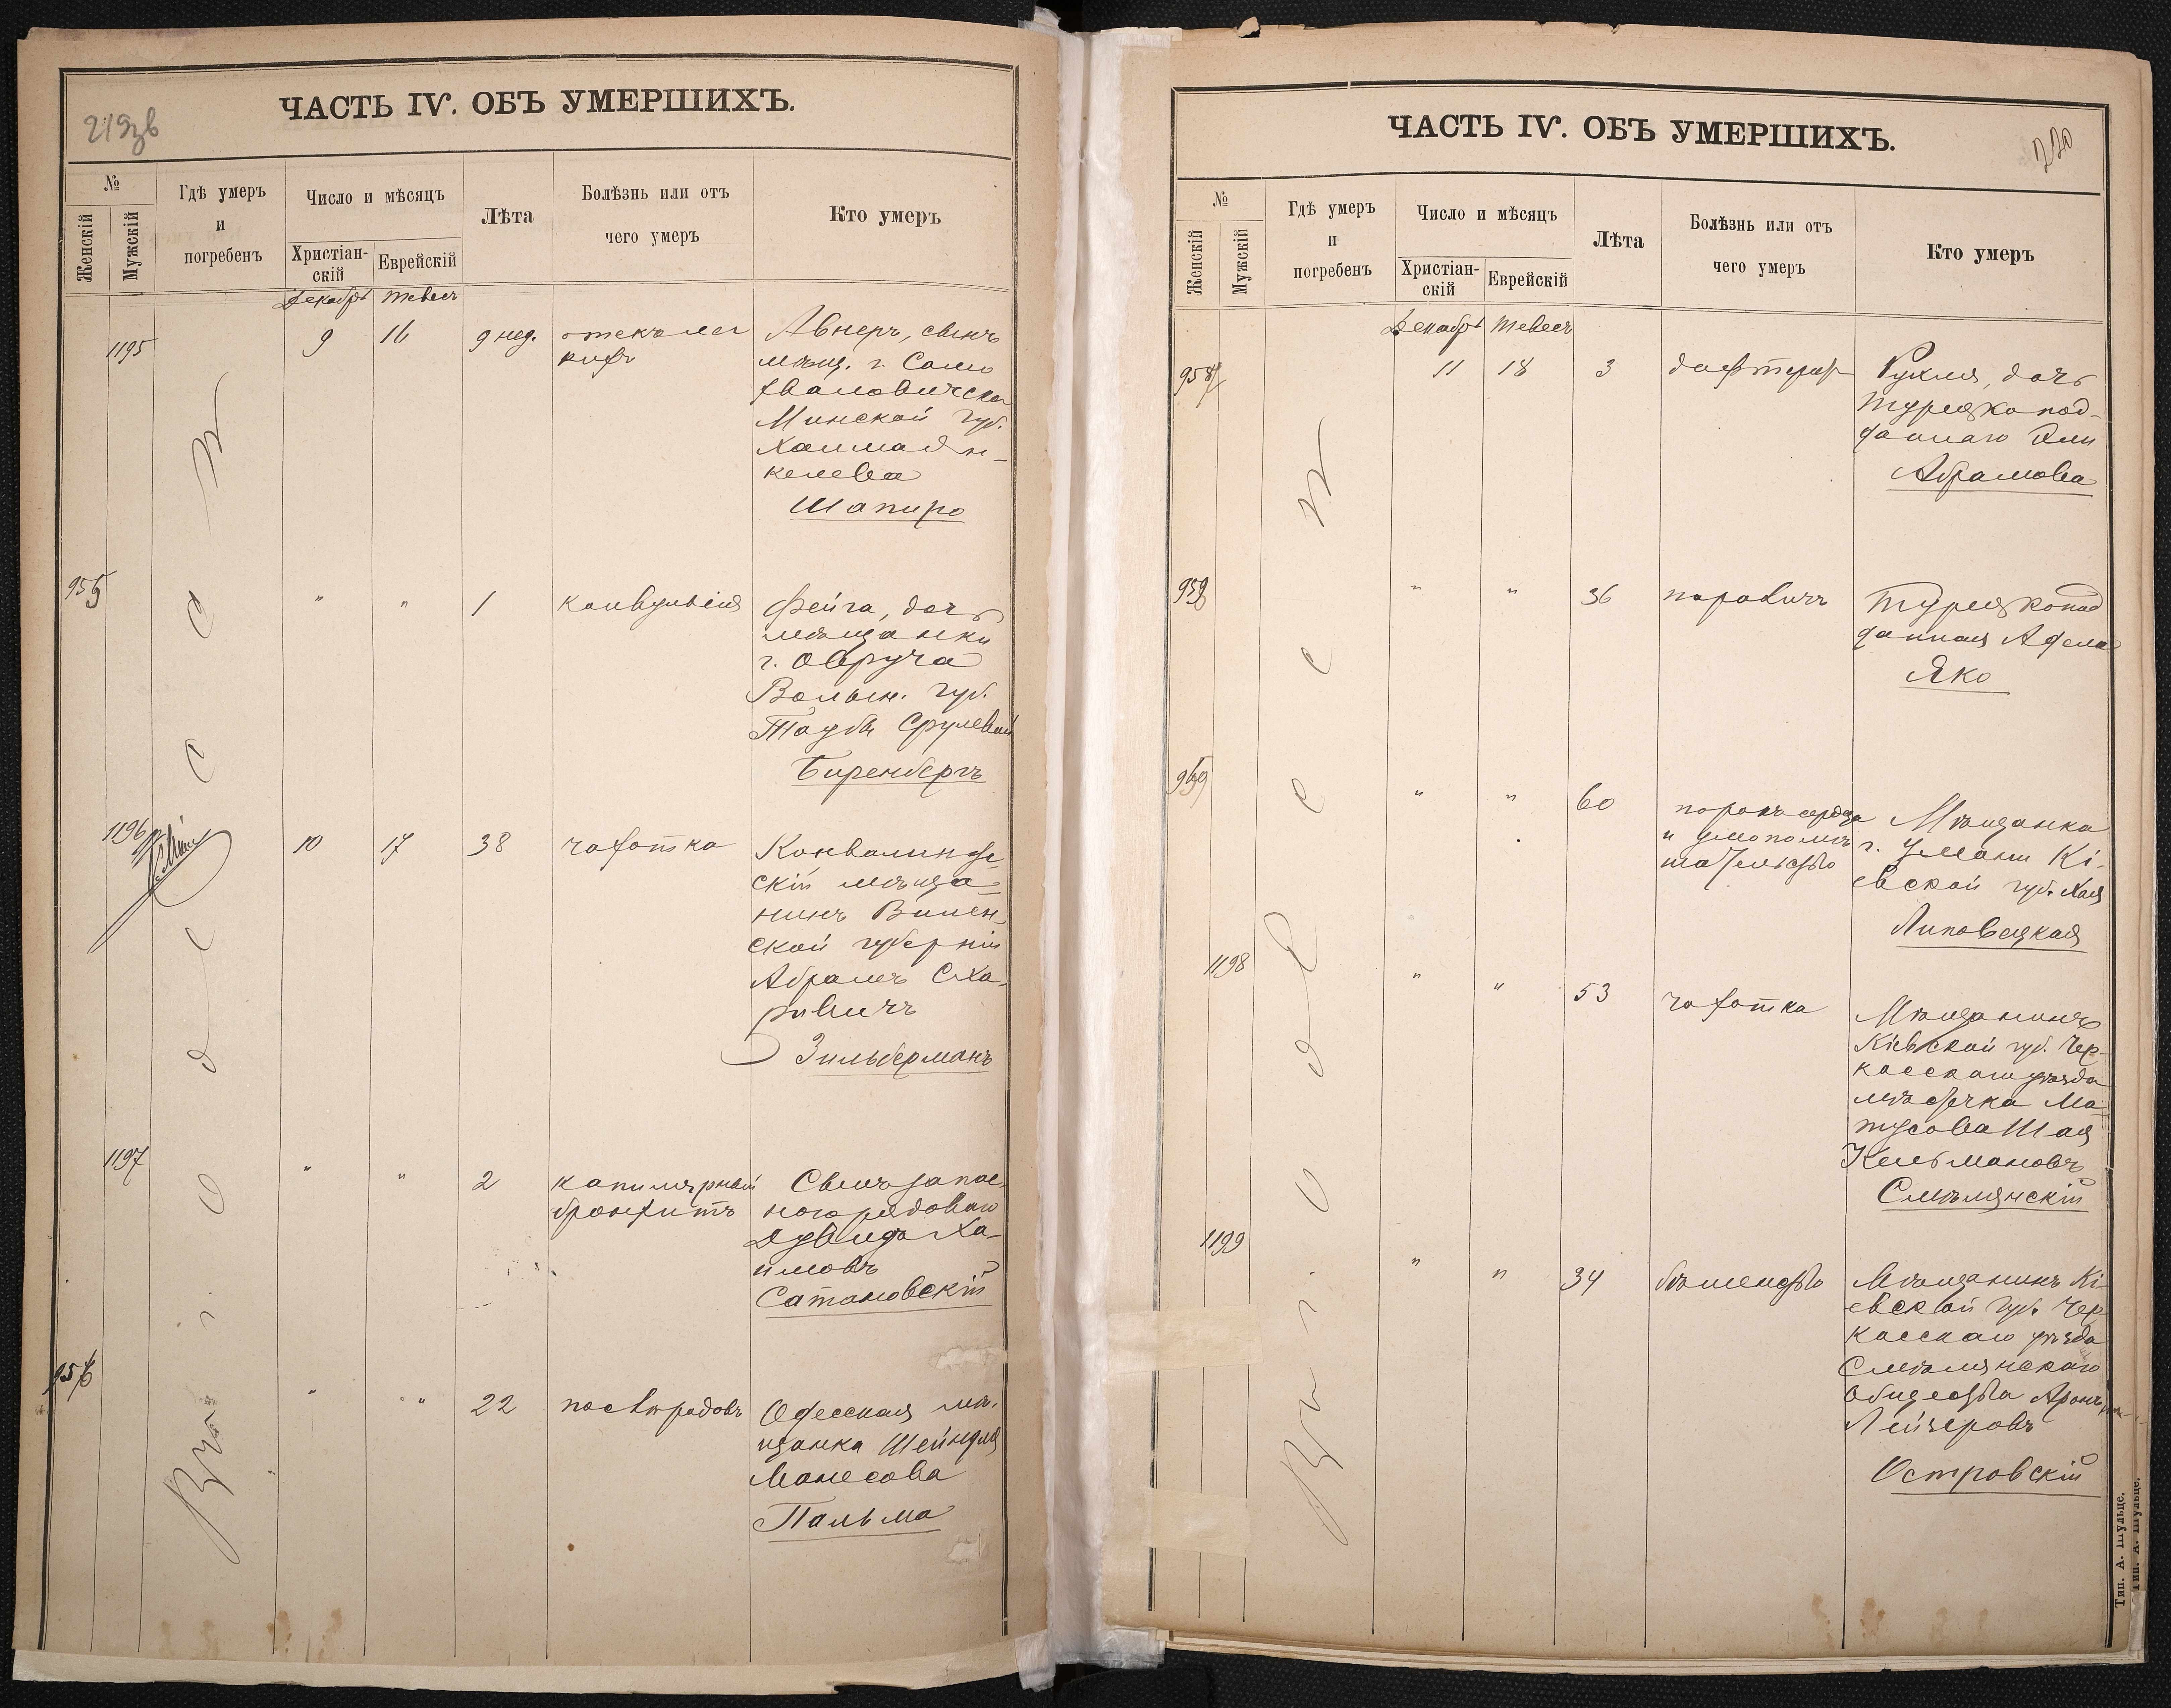 219зв
ЧАСТЬ IV. ОБЪ УМЕРШИХЪ.
№
Женскій
Мужскій
Гдѣ умеръ
и
погребенъ
Число и мѣсяцъ
Христіан-
скій
Еврейскій
Лѣта
Болѣзнь или отъ
чего умеръ
Кто умеръ
Декабрь Тевесъ
1195 9 16 9 нед. отекъ лег
кихъ
Авнеръ, сынъ
мѣщ. г. Само
хваловическа
Минской губ.
Хаима Ян-
келева
Шапиро
955 " " 1 конвульсія
Фейга, дочь
мѣщанки
г. Овруча
Волын. губ.
Таубы Срулевой
Биренбергъ
1196 10 17 38 чахотка
скій мѣща-
нинъ Вилен-
ской губерніи
Абрамъ Сха-
ріевичъ
Зильберманъ
1197 " " 2 капилярный
бронхитъ
Сынъ запас-
ного рядового
Давида Ха-
имовъ
Сатановскій
956 " " 22
Одесская мѣ-
щанка Шейндля
Манесова
Пальма
Въ г. Одессѣ
220
ЧАСТЬ IV. ОБЪ УМЕРШИХЪ.
№
Женскій
Мужскій
Гдѣ умеръ
и
погребенъ
Число и мѣсяцъ
Христіан-
скій
Еврейскій
Лѣта
Болѣзнь или отъ
чего умеръ
Кто умеръ
Декабрь Тевесъ
957 11 18 3 дифтеритъ
Рухля, дочь
турецкопод-
даннаго Эли
Абрамова
958 " " 36
Турецкопод
данная Адела
Яко
959 " " 60 порокъ сердца
и умопомѣ
шательство
Мѣщанка
г. Умани Кі-
евской губ. Хая
Липовецкая
1198 " " 53 чахотка
Мѣщанинъ
Кіевской губ. Чер-
касскаго уѣзда
мѣстечка Ма-
тусова Шая
Кельмановъ
Смѣлянскій
1199 " " 34 бѣшенство
Мѣщанинъ Кі-
евской губ. Чер-
касскаго уѣзда
Смѣлянскаго
Общества Аронъ
Лейзеровъ
Островскій
Въ г. Одессѣ
Тип. А. Шульце.
Тип. А. Шульце.